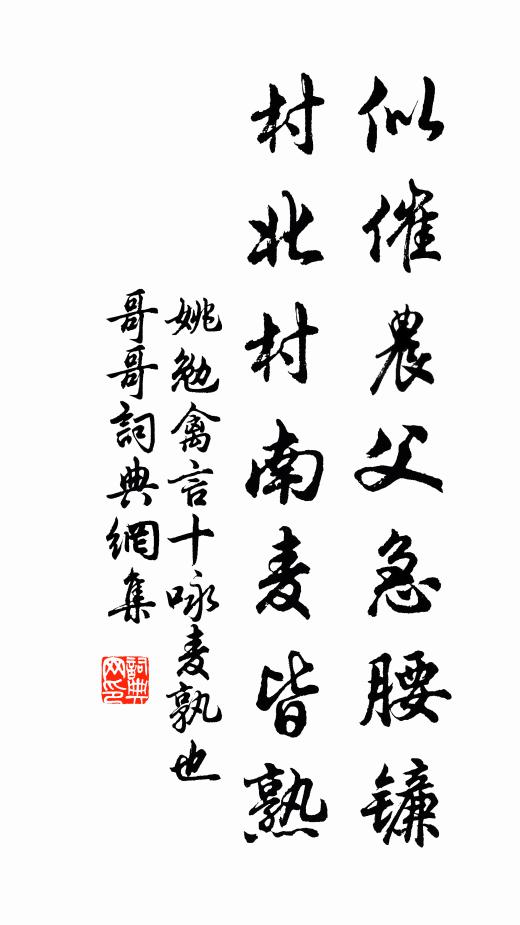 似催農父急腰镰
村北村南麦皆熟
姚勉禽言十咏麦孰也
哥哥詞典網集
詞典网印